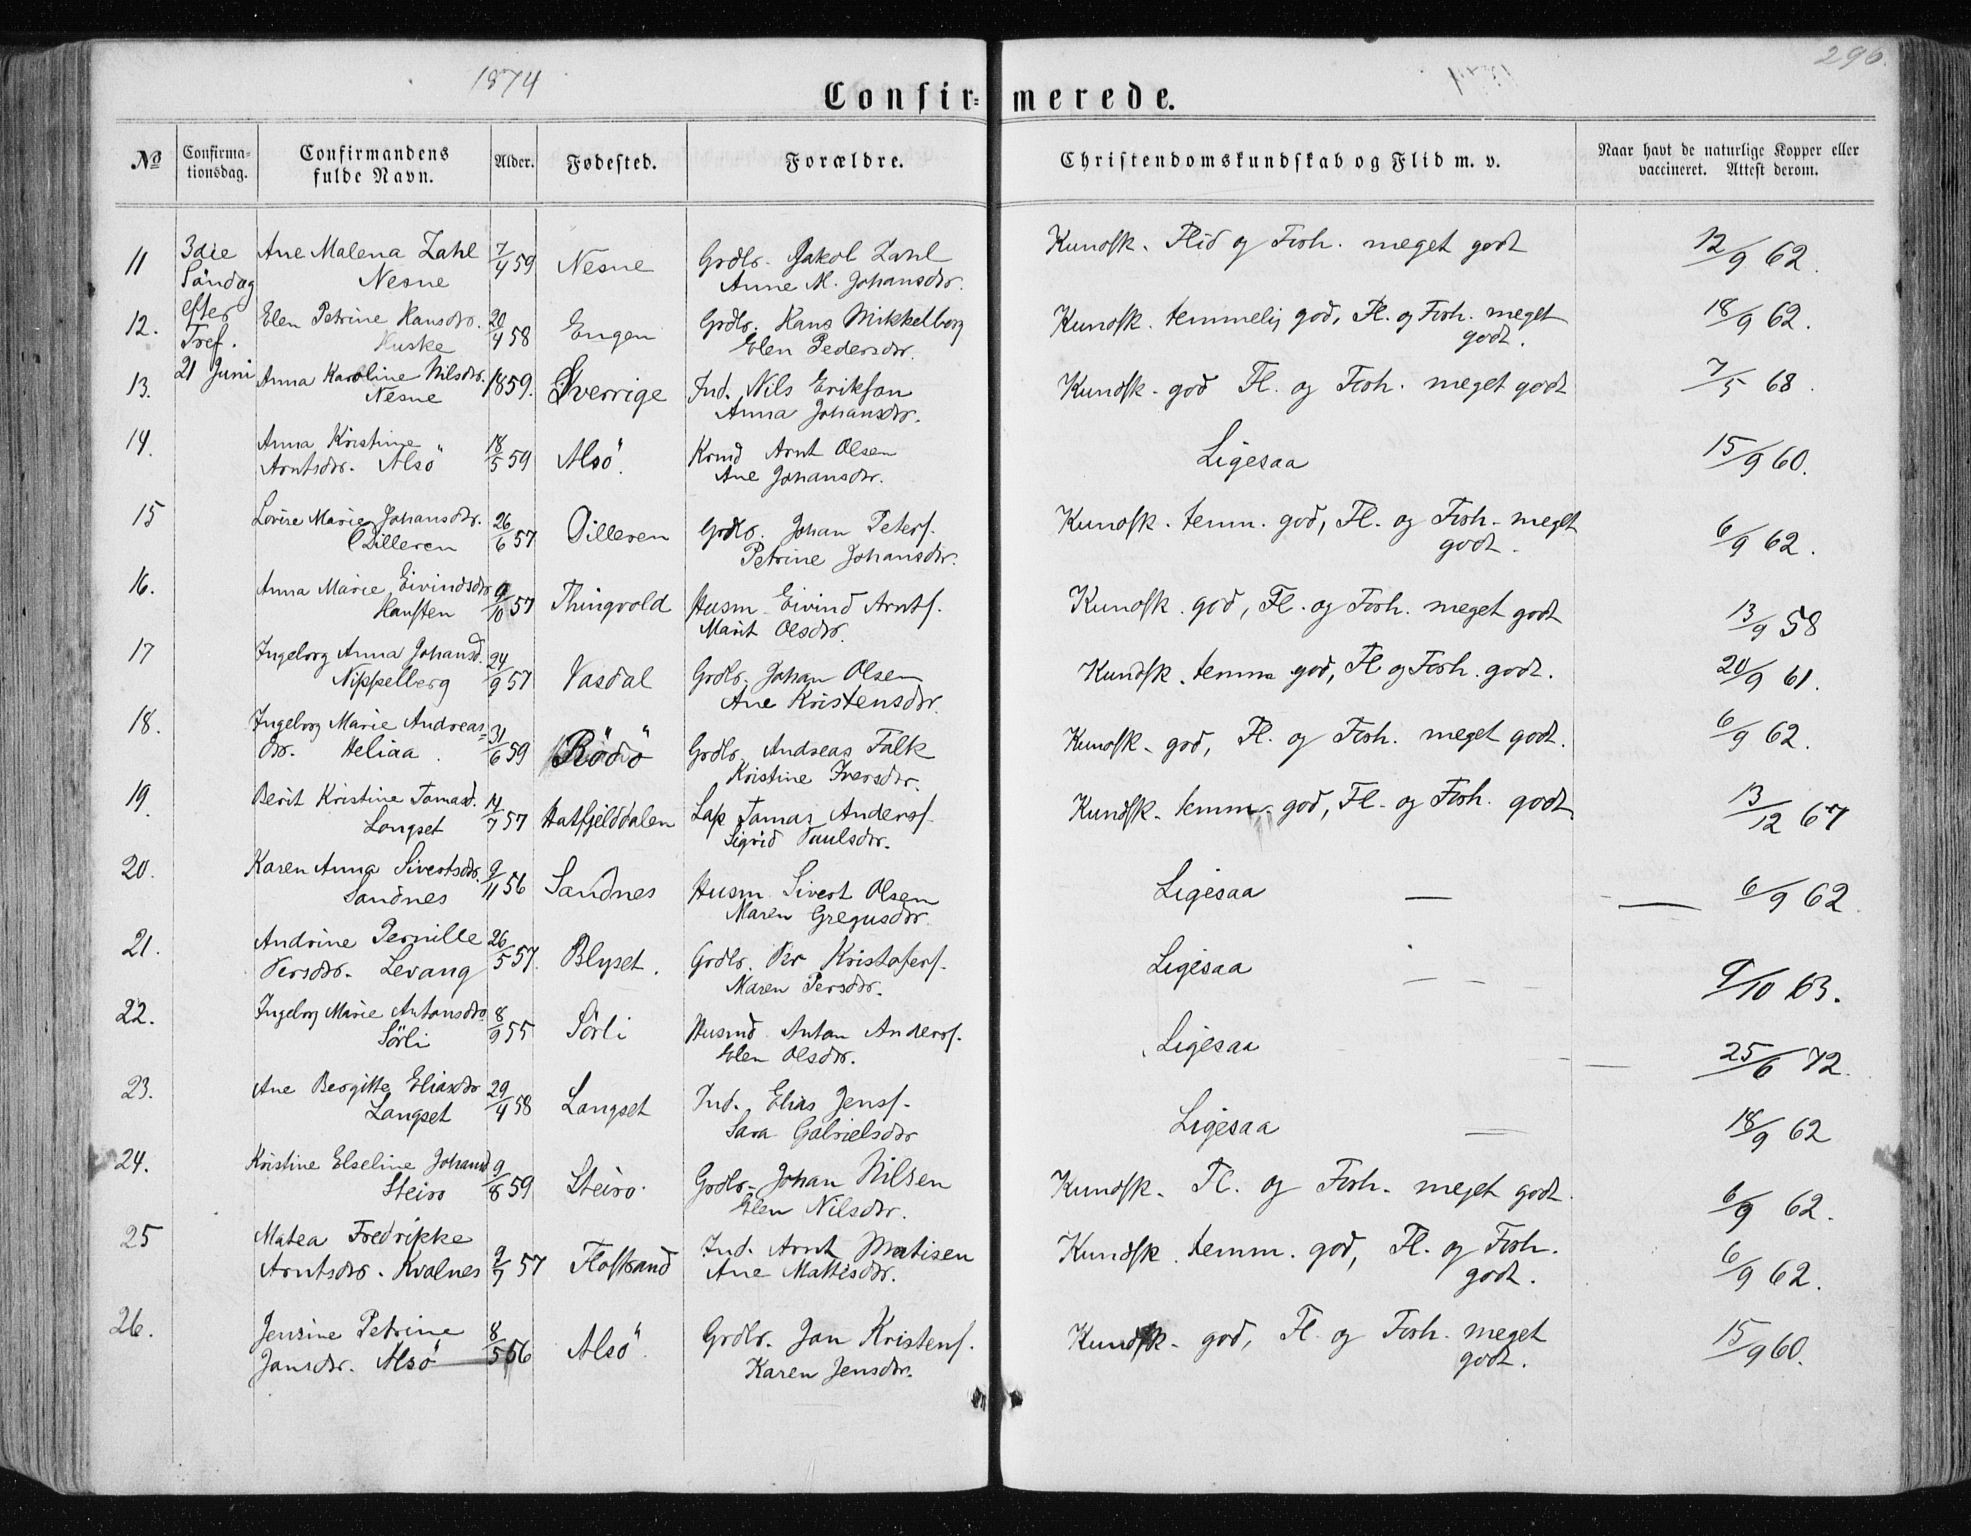 1874
296.
Confir=
merede.
No
Confirma-
tionsdag.
Confirmandens
fulde Navn.
Alder.
Fødested.
Forældre.
Christendomskundskab og Flid m. v.
Naar havt de naturlige Kopper eller
vaccineret. Attest derom.
3die
Söndag
efter
Tref.
21 Juni
11 Ane Malena Zahl 7/4 59 Nesne Grdbr. Jakob Zahl Kundsk. Flid og Forh. meget godt 12/9 62.
Nesne Anne M. Johansdr.
12. Elen Petrine Hansdr. 20/4 58 Engen Grdbr. Hans Mikkelborg Kundsk. temmelig god, Fl. og Forh. meget 18/9 62.
Huske Elen Pedersdr. godt.
13. Anna Karoline Nilsdr. 1859. Sverrige Ind. Nils Eriksan Kundsk. god Fl. og Forh. meget godt 7/5 68.
Nesne Anna Johansdr.
14. Anna Kristine 18/5 59 Alsö. Krnd Arnt Olsen Ligesaa 15/9 60.
Arntsdr. Alsö Ane Johansdr.
15 Lovise Marie Johansdr. 26/6 57 Dilleren Grdbr. Johan Peters. Kundsk. temm. god, Fl. og Forh. meget 6/9 62.
Dilleren Petrine Johansdr. godt.
16. Anna Marie Eivindsdr 9/10 57 Thingvold Husm. Eivind Arnts. Kundsk. god, Fl. og Forh. meget godt 13/9 58
Hansten Marit Olsdr.
17 Ingeborg Anna Johansd. 24/9 57 Vasdal Grdbr. Johan Olsen Kundsk. temm god, Fl og Forh. godt. 20/9 61.
Nippelberg Ane Kristensdr.
18. Ingeborg Marie Andreas= 31/6 59 Rödö Grdbr. Andreas Falk Kundsk. god, Fl. og Forh. meget godt. 6/9 62.
dr. Heliaa. Kristine Iversdr.
19. Berit Kristine Tomasd. 14/7 57 Hatfjelddalen Lap Tomas Anders. Kundsk. temm. god, Fl. og Forh. godt 13/12 67
Langset Sigrid Paulsdr.
20. Karen Anna Sivertsdr. 9/11 56 Sandnes Husm. Sivert Olsen Ligesaa — — 6/9 62.
Sandnes Maren Gregusdr.
21. Andrine Pernille 26/5 57. Blyset. Grdbr. Per Kristofers. Ligesaa 9/10 63.
Persdr. Levang Maren Persdr.
22. Ingeborg Marie Antonsdr 8/9 55 Sörli Husmd. Anton Anders. Ligesaa — 25/6 72.
Sörli Elen Olsdr.
23. Ane Bergitte Eliasdr 29/4 58 Langset Ind. Elias Jens. Ligesaa — 18/9 62
Langset Sara Gabrielsdr
24. Kristine Elseline Johansd 9/8 59 Steiro. Grdbr. Johan Nilsen Kundsk. Fl. og Forh. meget godt. 6/9 62.
Steiro Elen Nilsdr.
25 Matea Fredrikke 9/7 57 Flostrand Ind. Arnt Matisen Kundsk. temm. god, Fl. og Forh. 6/9 62.
Arntsdr. Kvalnes Ane Mattisdr. godt.
26. Jensine Petrine 8/5 56 Alsö. Grdbr. Jan Kristens. Kundsk. god, Fl. og Forh. meget 15/9 60.
Jansdr. Alsö Karen Jensdr. godt.